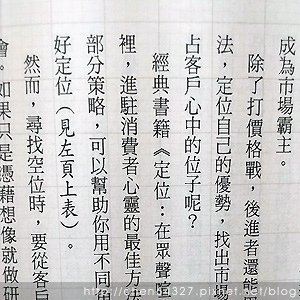 成為市場霸主。
除了打價格戰，後進者還能
法，定位自己的優勢，找出市場
占客戶心中的位子呢？
經典書籍《定位：在眾聲喧
裡，進駐消費者心靈的最佳方
部分策略，可以幫助你用不同角
好定位（見左頁上表）。
然而，尋找空位時，要從客戶
會。如果只是憑藉想像就做研